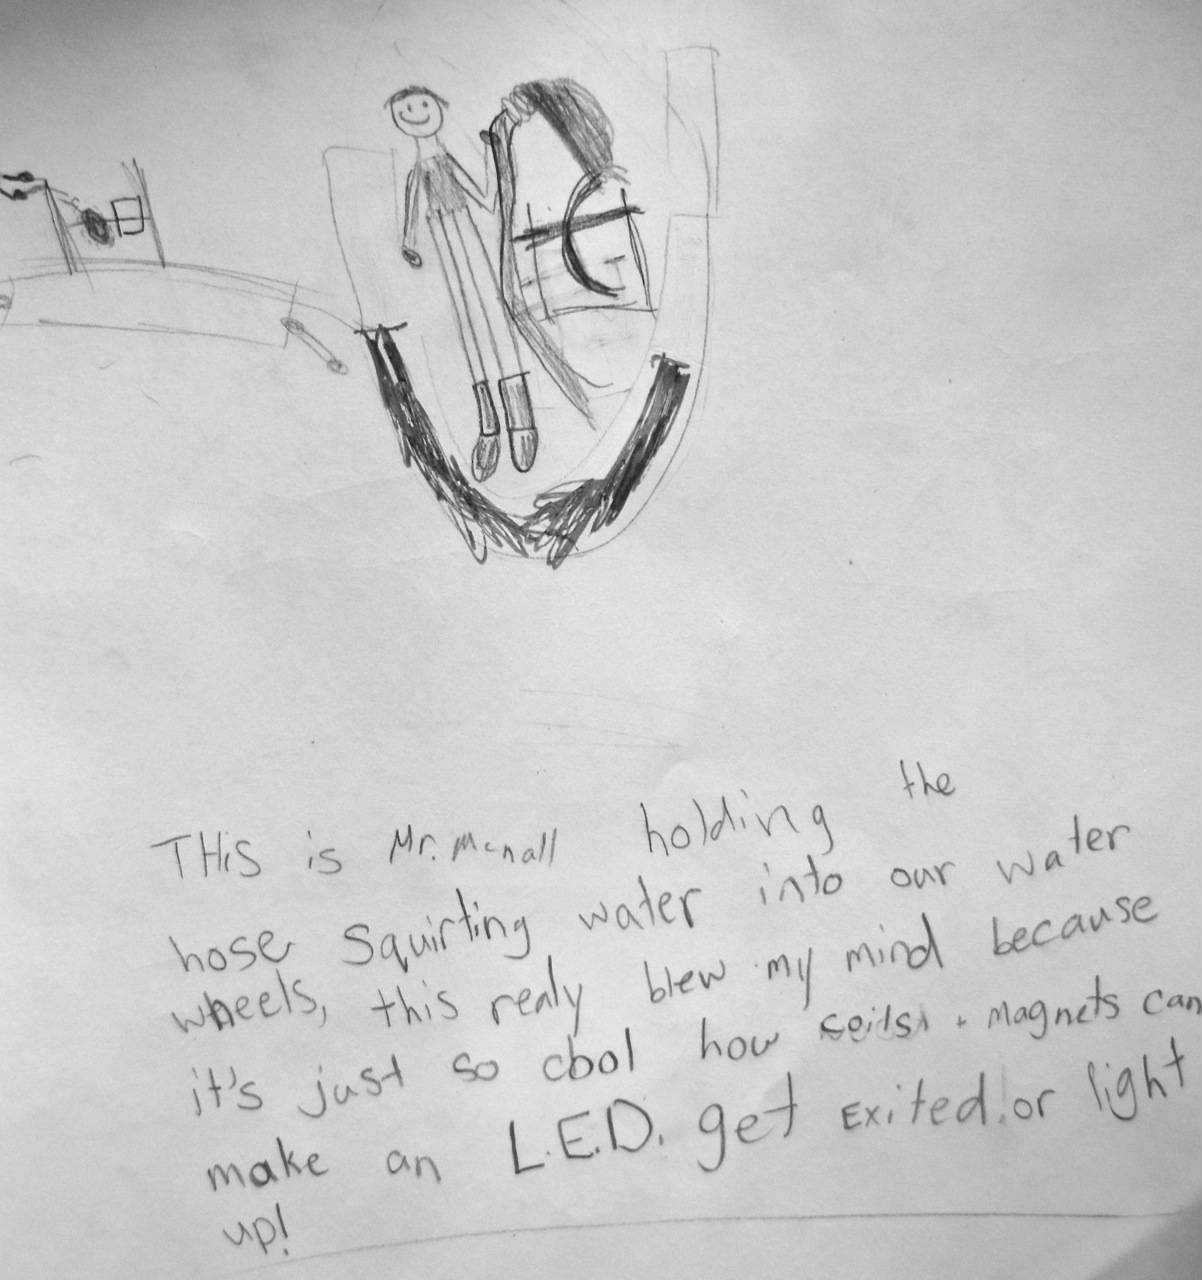 THiS is Mr. Mcnall holding the
hose Squirting water into our water
wheels, this realy blew my mind because
it's just so cool how + magnets can
make an L.E.D. get Exited! or light
up!